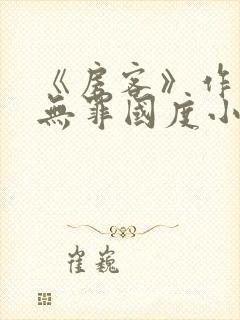 《房客》作
無罪國度小
崔巍